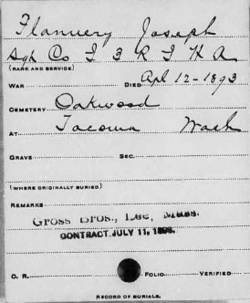 Flannery Joseph
Sgt Co I 3 R I H A
(RANK AND SERVICE)
WAR DIED Apl 12-1893
CEMETERY Oakwood
AT Tacoma Wash
GRAVE SEC.
(WHERE ORIGINALLY BURIED)
REMARKS
Gross Bros., Lee, Mass.
CONTRACT JULY 11, 1898.
C. R. FOLIO VERIFIED
RECORD OF BURIALS.